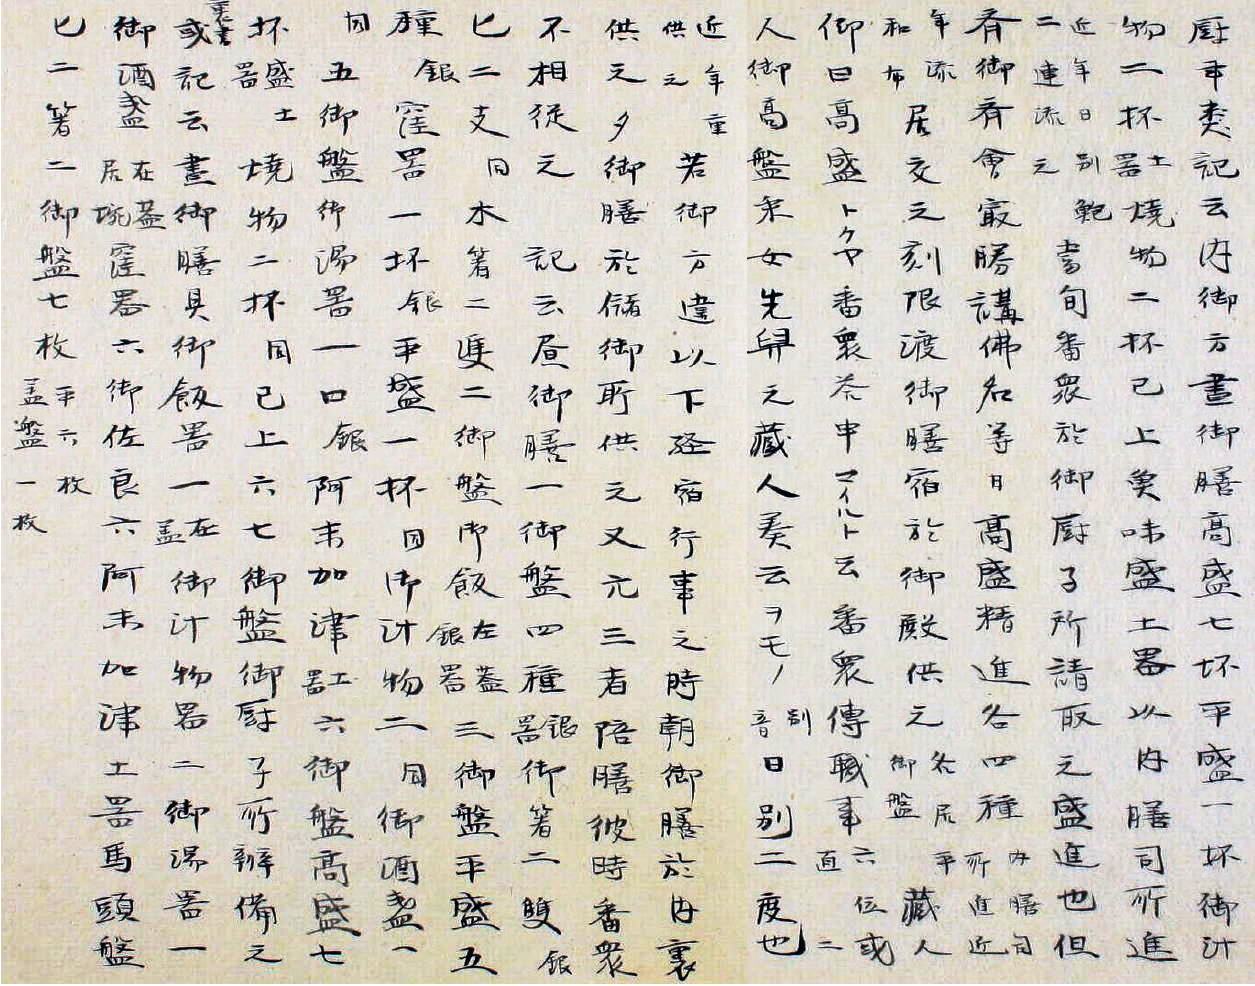 厨事類記云内御方晝御膳高盛七坏平盛一坏御汁
物二杯土器燒物二杯已上魚味盛土器以内膳司所進
近年日別鮑二連流之當旬番衆於御厨子所請取之盛進也但
齊御齊會寂勝講佛名等日高盛精進各四種内膳司所進近
年流和布居交之刻限渡御膳宿於御殿供之各居御盤平藏人
御日高盛トクヤ番衆参申マイルト云番衆傳職事六位或直二
人御高盤采女先舁之藏人奏云ヲモノ別音日別二度也
近年重供之若御方違以下経宿行事之時朝御膳於内裏
供之夕御膳於儲御所供之又元三者陪膳彼時番衆
不相従之記云昼御膳一御盤四種銀器御箸二雙銀
匕二支同木箸二隻二御盤御飯在蓋銀器三御盤平盛五
種銀窪器一坏銀平盛一杯同御汁物二同御酒盞一
同五御盤御湯器一口銀阿末加津土器六御盤高盛七
坏盛土器燒物二杯同已上六七御盤御厨子所辨備之
裏書或記云晝御膳具御飯器一在盖御汁物器二御湯器一
御酒盞在蓋居埦窪器六御佐良六阿末加津土器馬頭盤
匕二箸二御盤七枚平六枚盂盤一枚